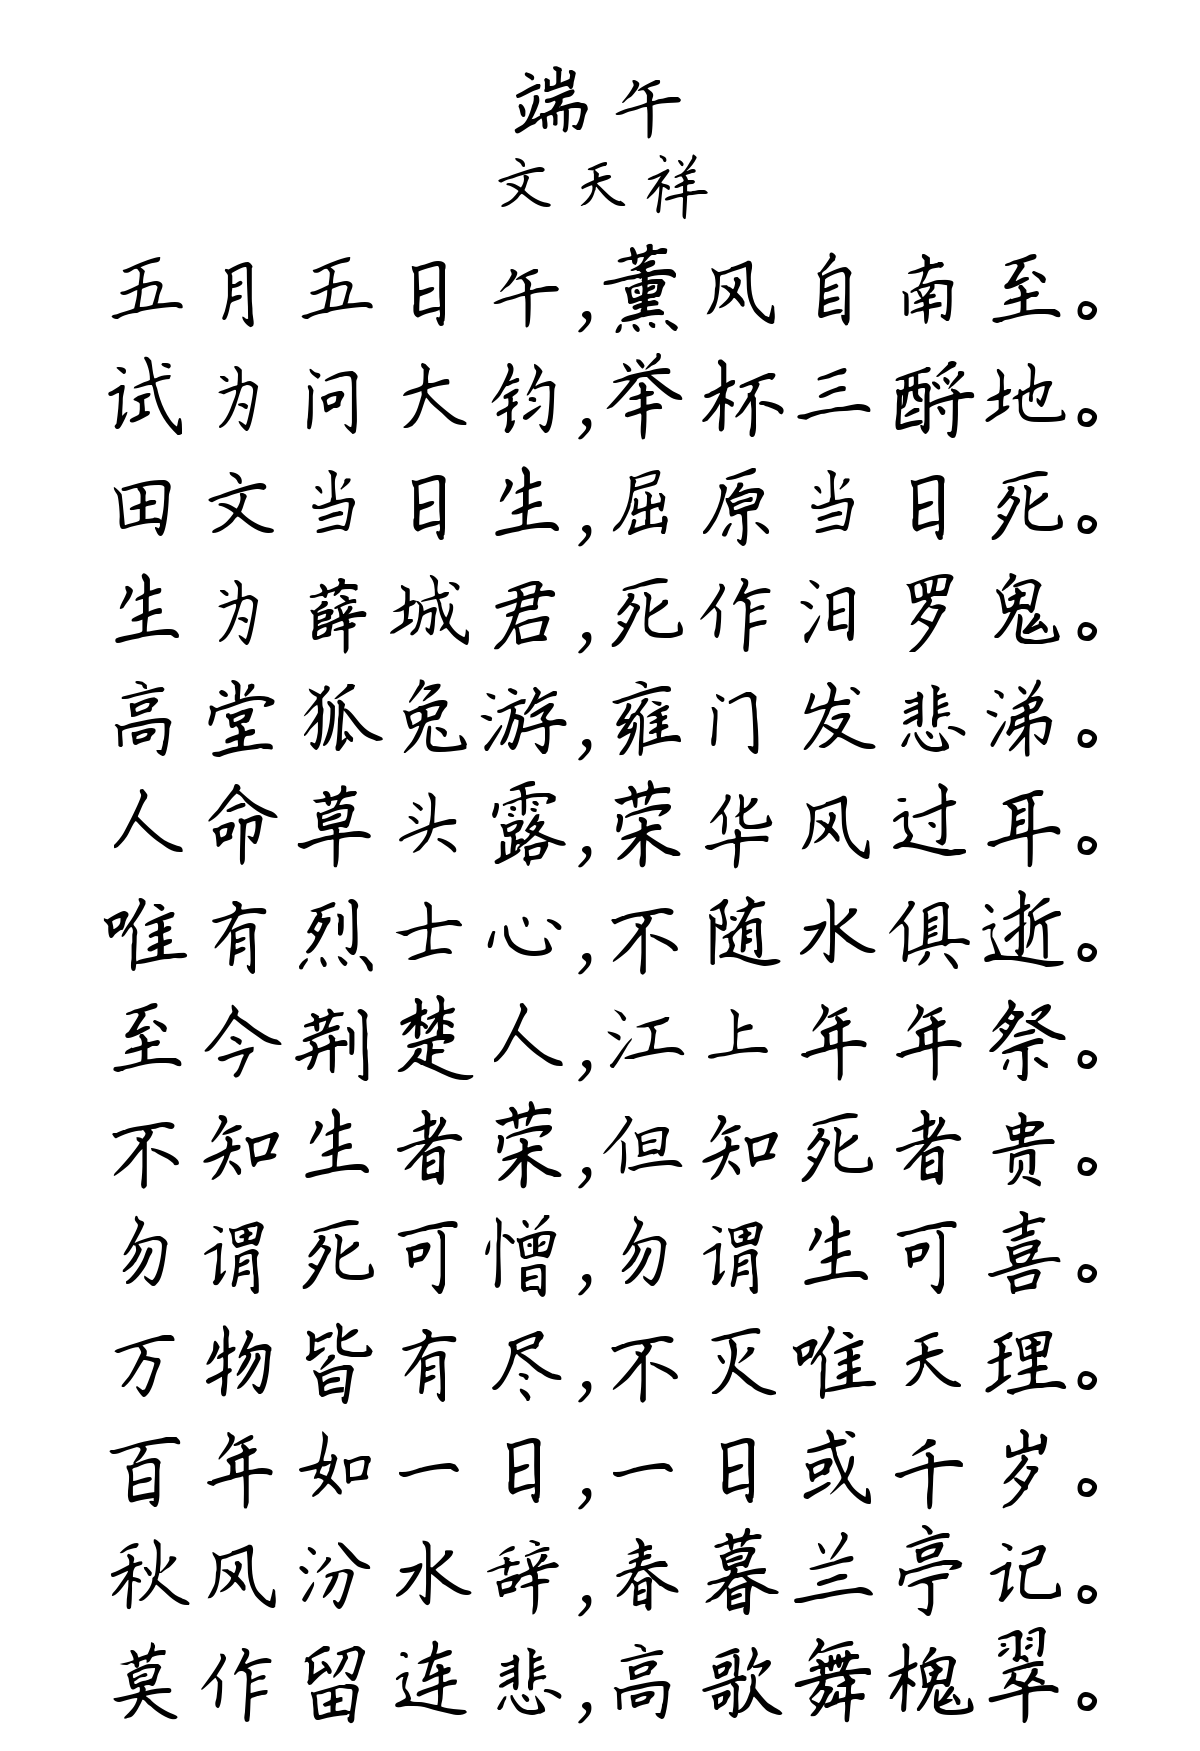 端午
文天祥
五月五日午,薰风自南至。
试为问大钧,举杯三酹地。
田文当日生,屈原当日死。
生为薛城君,死作汨罗鬼。
高堂狐兔游,雍门发悲涕。
人命草头露,荣华风过耳。
唯有烈士心,不随水俱逝。
至今荆楚人,江上年年祭。
不知生者荣,但知死者贵。
勿谓死可憎,勿谓生可喜。
万物皆有尽,不灭唯天理。
百年如一日,一日或千岁。
秋风汾水辞,春暮兰亭记。
莫作留连悲,高歌舞槐翠。